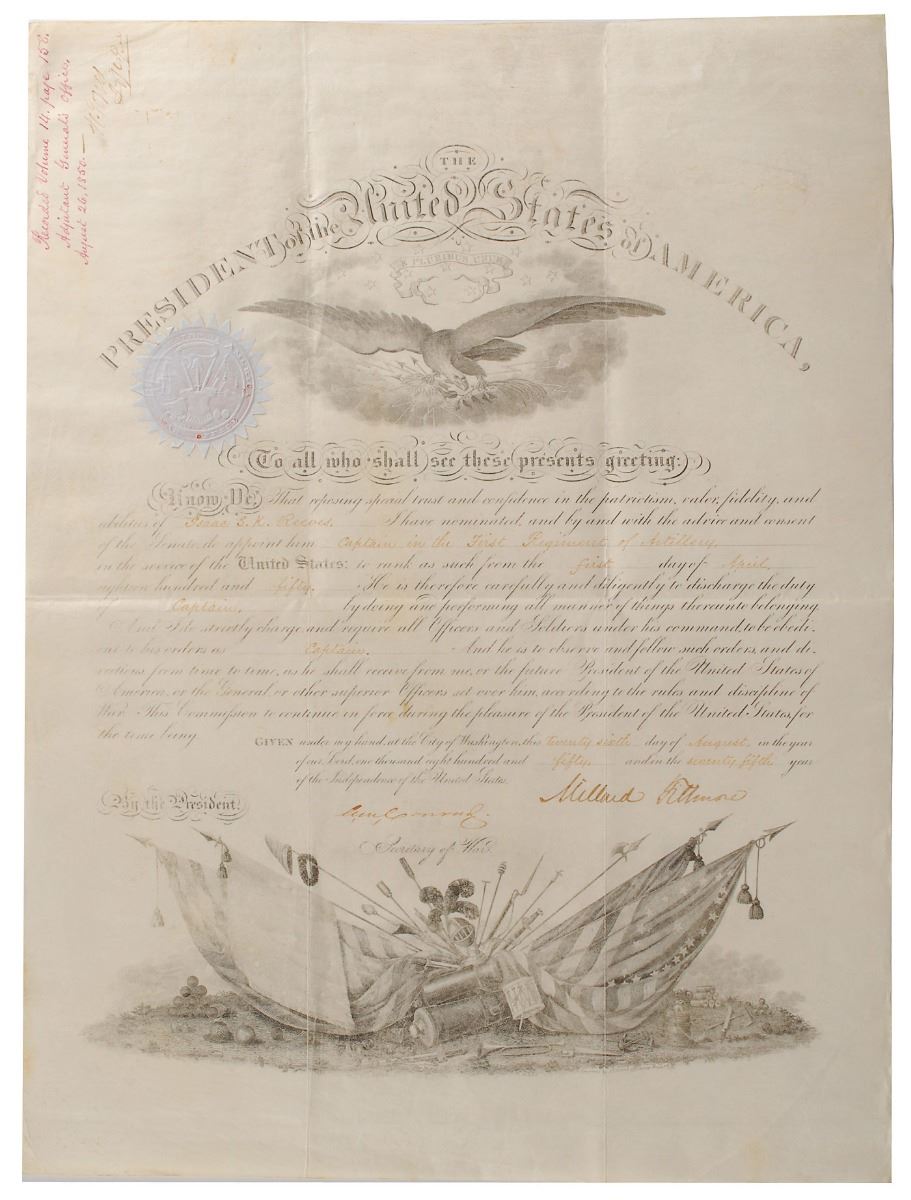 Recorded Volume 14. page 158.
Adjutant General's Office,
August 26, 1850.
THE
PRESIDENT of the United States of AMERICA,
E PLURIBUS UNUM
To all who shall see these presents greeting:
Know Ye, That reposing special trust and confidence in the patriotism, valor, fidelity, and
abilities of Isaac S. K. Reeves, I have nominated, and by and with the advice and consent
of the Senate, do appoint him Captain in the First Regiment of Artillery,
in the service of the United States: to rank as such from the first day of April,
eighteen hundred and fifty. He is therefore carefully and diligently to discharge the duty
of Captain, by doing and performing all manner of things thereunto belonging.
And I do strictly charge and require all Officers and Soldiers under his command, to be obedi-
ent to his orders as Captain. And he is to observe and follow such orders, and di-
rections, from time to time, as he shall receive from me, or the future President of the United States of
America, or the General, or other superior Officers set over him, according to the rules and discipline of
War. This Commission to continue in force during the pleasure of the President of the United States, for
the time being.
GIVEN under my hand, at the City of Washington, this twenty sixth day of August, in the year
of our Lord, one thousand eight hundred and fifty, and in the seventy fifth year
of the Independence of the United States.
By the President: Millard Fillmore
Conrad.
Secretary of War.